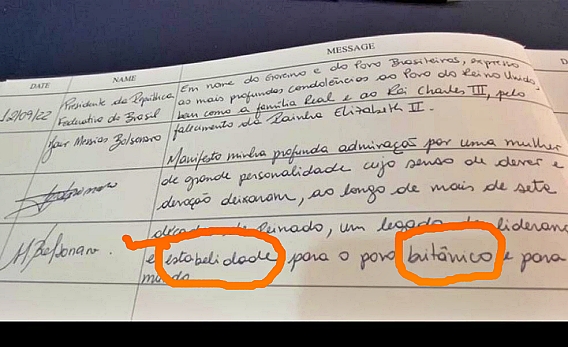 DATE NAME MESSAGE D
12/09/22 Presidente da República Em nome do Governo e do Povo Brasileiros, expresso
Federativa do Brasil as mais profundas condolências ao Povo do Reino Unido,
bem como à família Real e ao Rei Charles III, pelo
Jair Messias Bolsonaro falecimento da Rainha Elizabeth II.
Manifesto minha profunda admiração por uma mulher
de grande personalidade cujo senso de dever e
devoção deixaram, ao longo de mais de sete
Reinado, um legado de lideran
MBolsonaro. e estabelidade para o povo britânico e para
mundo